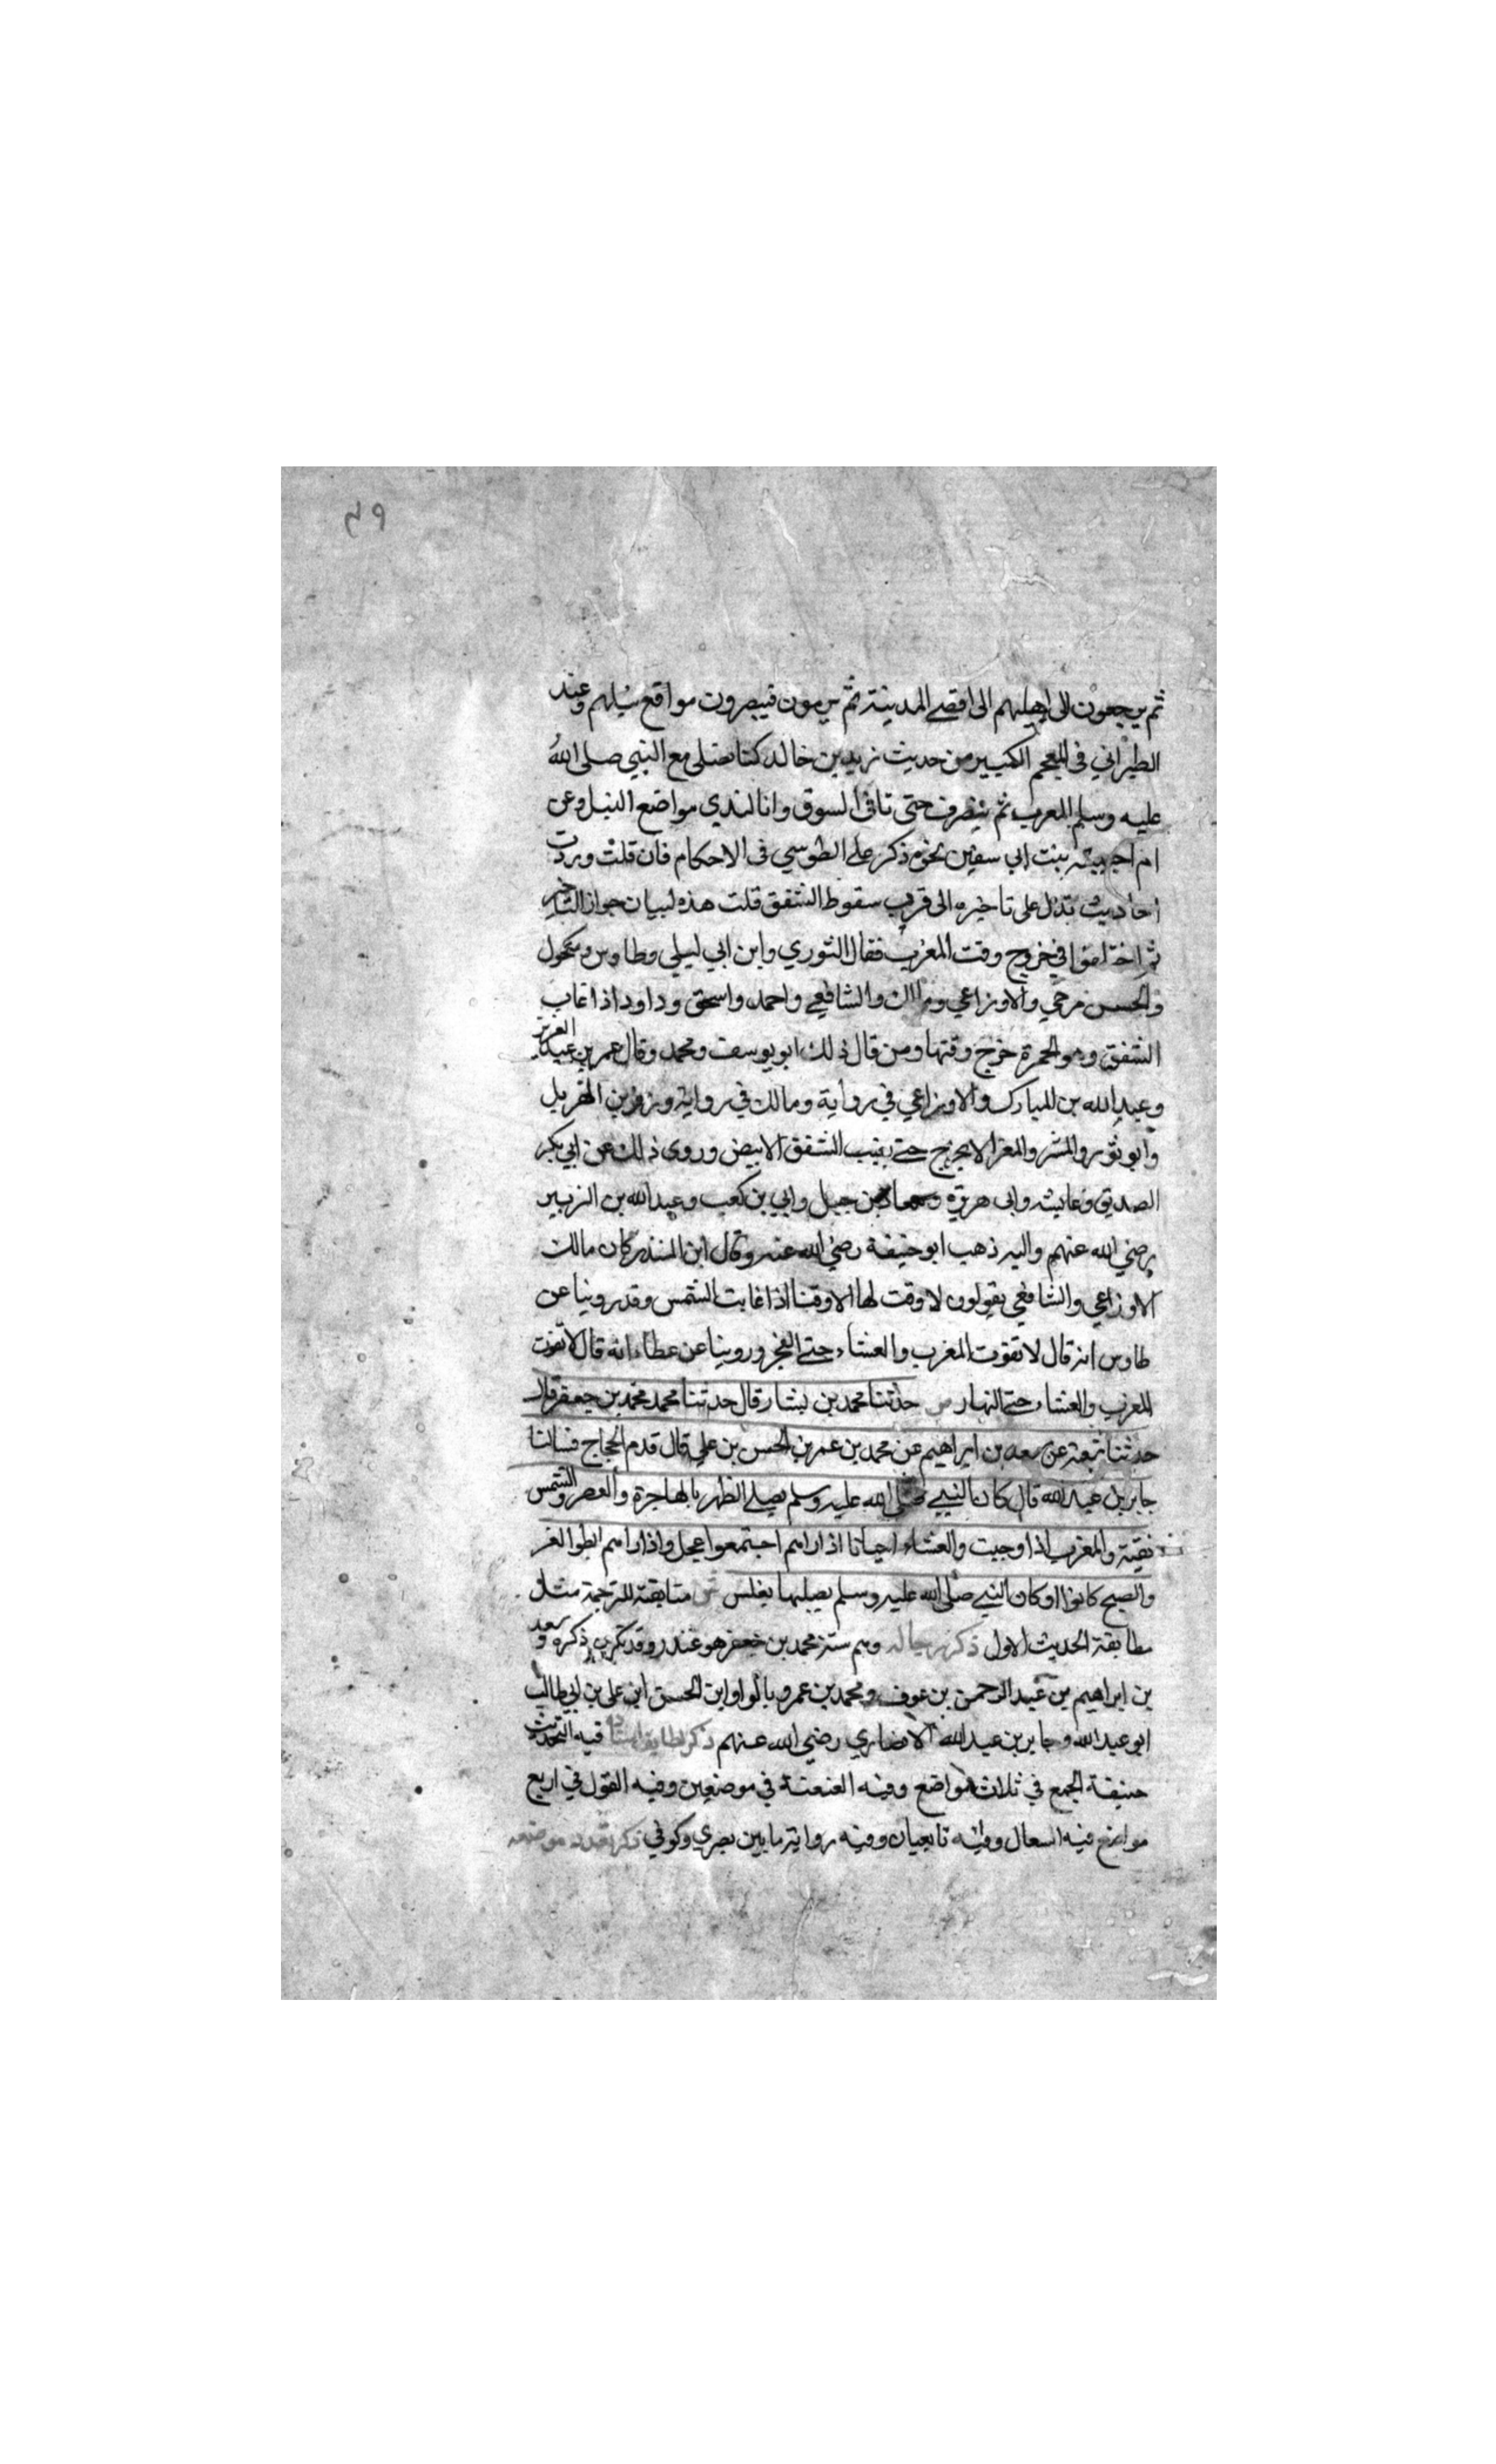 ٤٩
ثم يرجعون الى اهليهم الى اقصى المدينة ثم يرمون فيبصرون مواقع نبلهم وعند
الطبراني في المعجم الكبير من حديث زيد بن خالد كنا نصلى مع النبي صلى الله
عليه وسلم المغرب ثم ينصرف حتى تاتى السوق وانا لندي مواضع النبل وعن
ام حبيبة بنت ابي سفين نحوه ذكر على الطوسي في الاحكام فان قلت وردت
احاديث تدل على تاخيره الى قريب سقوط الشفق قلت هذه لبيان جواز التاخير
ثم اختلفوا في خروج وقت المغرب فقال الثوري وابن ابي ليلى وطاوس ومكحول
والحسن بن حي والاوزاعي ومالك والشافعي واحمد واسحق وداود اذا غاب
الشفق وهو الحمرة خرج وقتها ومن قال ذلك ابو يوسف ومحمد وقال عمر بن عبد العزيز
وعبد الله بن المبارك والاوزاعي في رواية ومالك في رواية وزفر بن الهذيل
وابو ثور والمبرد والفرا لا يخرج حتى يغيب الشفق الابيض وروى ذلك عن ابي بكر
الصديق وعايشه وابى هريرة ومعاذ بن جبل وابي بن كعب وعبد الله بن الزبير
رضي الله عنهم واليه ذهب ابو حنيفة رضي الله عنه وقال ابن المنذر كان مالك
الاوزاعي والشافعي يقولون لا وقت لها الا وقتا اذا غابت الشمس وقد روينا عن
طاوس انه قال لا تفوت المغرب والعشاء حتى الفجر وروينا عن عطاء انه قال لا تفوت
المغرب والعشاء حتى النهار ص حدثنا محمد بن بشار قال حدثنا محمد محمد بن جعفر قال
حدثنا شعبة عن سعد بن ابراهيم عن محمد بن عمر بن الحسن بن علي قال قدم الحجاج فسالنا
جابر بن عبد الله قال كان النبي صلى الله عليه وسلم يصلى الظهر بالهاجرة والعصر والشمس
نقية والمغرب اذا وجبت والعشاء احيانا اذا راهم اجتمعوا عجل واذا راهم ابطوا اخر
والصبح كانوا او كان النبي صلى الله عليه وسلم يصليها بغلس ش متابقة للترجمة مثل
مطابقة الحديث الاول ذكر رجاله وهم ستة محمد بن جعفر هو غندر وقد تكرر ذكره وسعد
بن ابراهيم بن عبد الرحمن بن عوف ومحمد بن عمرو بالواو ابن الحسن ابن على بن ابي طالب
ابو عبد الله وجابر بن عبد الله الانصاري رضي الله عنهم ذكر لطايف اسناده فيه التحديث
صيغة الجمع في ثلاث مواضع وفيه العنعنة في موضعين وفيه القول في اربع
مواضع فيه السوال وفيه تابعيان وفيه رواية ما بين بصري وكوفي ذكر تعدد موضعه